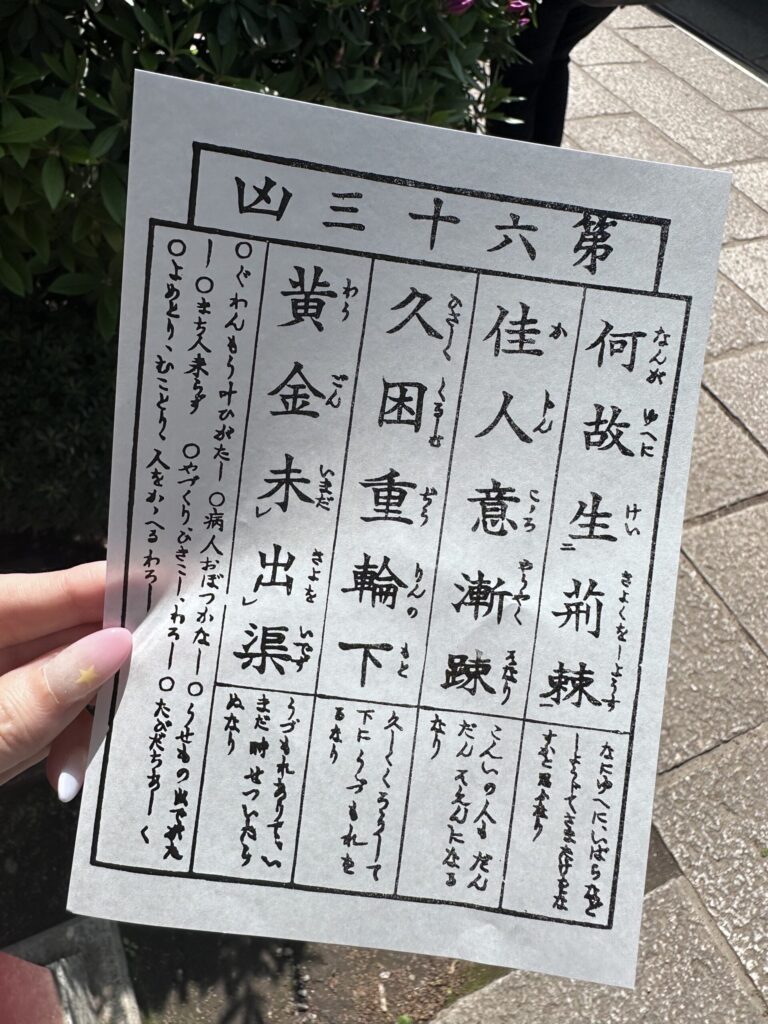 第六十三凶
何故生二荊棘一
なんぞ ゆへに けい きよくをしようず
なにゆへに、いばらなど
しようじてさまたげをな
すかと思ふなり
佳人意漸踈
か じん こゝろ やうやく そなり
こんいの人もだん
だんそえんになる
なり
久困重輪下
ひさしく くるしむ ぢう りんの もと
久しくくろうして
下にうづもれを
るなり
黄金未レ出レ渠
わう ごん いまだ きよを いでず
うづもれありて、い
まだ時せついたら
ぬなり
○ぐわんもう叶ひがたし ○病人おぼつかなし ○うせもの出でがた
し ○まち人来らず ○やづくり、ひきこし、わろし ○たびだちあしく
○よめとり、むことり、人をかゝへるわろし